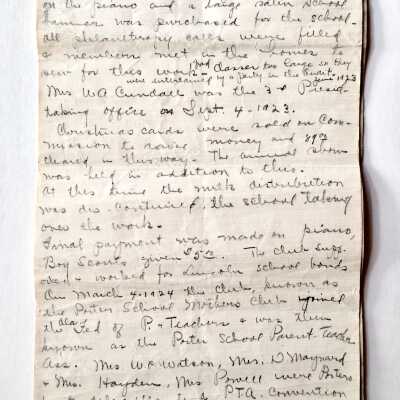 on the piano and a large satin school
banner was purchased for the school-
all philanthropy calls were filled
& members met in the homes to
sew for this work- had classes too large so they
were entertained by a party in the Park June 1923
Mrs WA Cundall was the 3rd Presid-
taking office on Sept. 4-1923.
Christmas cards were sold on Com-
mission to raise money and 89¢
cleared in this way - The annual show
was held in addition to this.
At this time the milk distribution
was dis-continued, the school taking
over the work.
Final payment was made on piano,
Boy Scouts given $5.00. The Club
& worked for Lincoln school bonds
On March 4-1924 the Club, known as
the Porter School Mothers Club joined
the Fed of P & Teachers & was then
known as the Porter School Parent-Teacher
Ass. Mrs. W. Watson, Mrs. D Maynard
& Mrs. Hayden, Mrs Powell were Porters
P.T.A. Convention